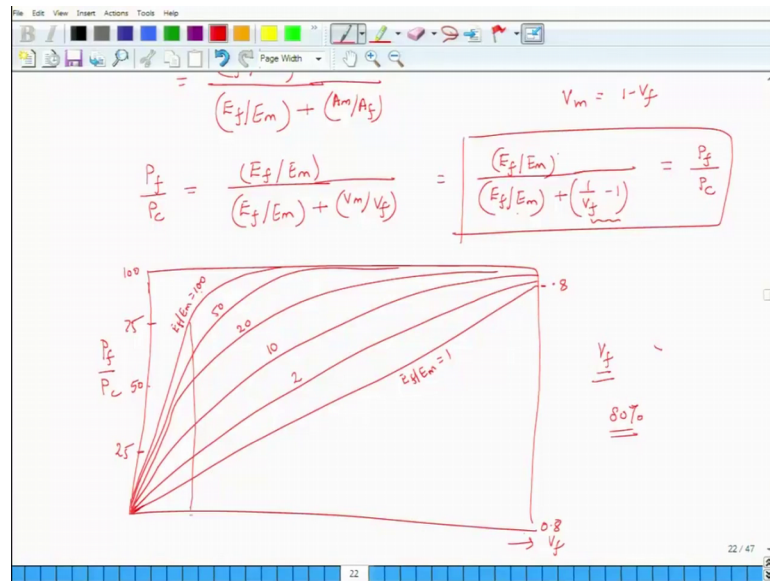 File Edit View Insert Actions Tools Help
B I
Page Width
=
(Ef/Em) + (Am/Af)
Vm = 1-Vf
Pf/Pc = (Ef/Em) / ((Ef/Em) + (Vm/Vf)) = (Ef/Em) / ((Ef/Em) + (1/Vf -1)) = Pf/Pc
100
75
Pf/Pc
50
25
Ef/Em=100
50
20
10
2
Ef/Em=1
.8
Vf
80%
0.8
→ Vf
22 / 47
22